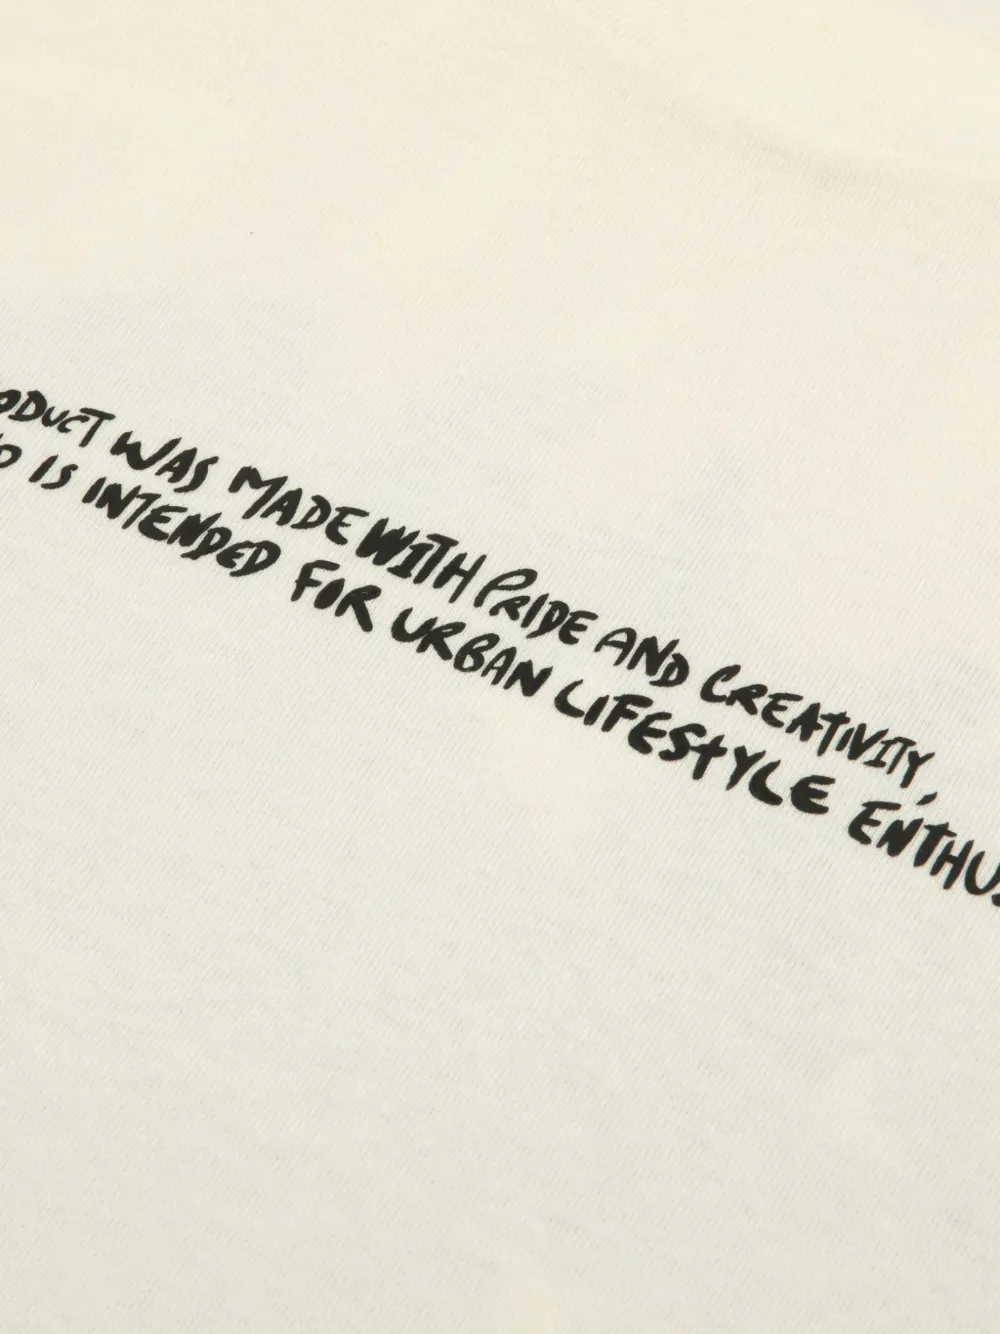 ODUCT WAS MADE WITH PRIDE AND CREATIVITY,
IS INTENDED FOR URBAN LIFESTYLE ENTHUS